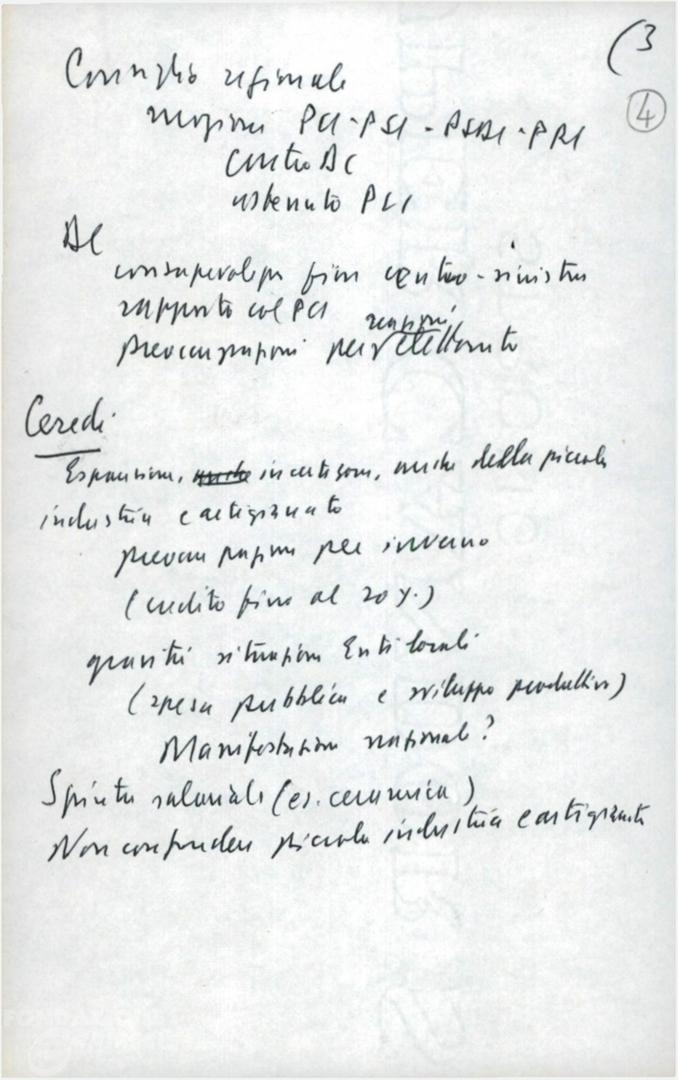 (3
4
Consiglio regionale
mozione PCI - PSI - PSDI - PRI
contro DC
astenuto PLI
DC
consapevolezza fine centro-sinistra
rapporto col PCI
reazioni
preoccupazioni per elettorato
Ceredi
Espansione, anche incertezza, anche della piccola
industria e artigianato
preoccupazioni per inverno
(credito fino al 20%)
gravità situazione Enti locali
(spesa pubblica e sviluppo produttivo)
Manifestazione nazionale?
Spinte salariali (es. ceramica)
Non confondere piccola industria e artigianato